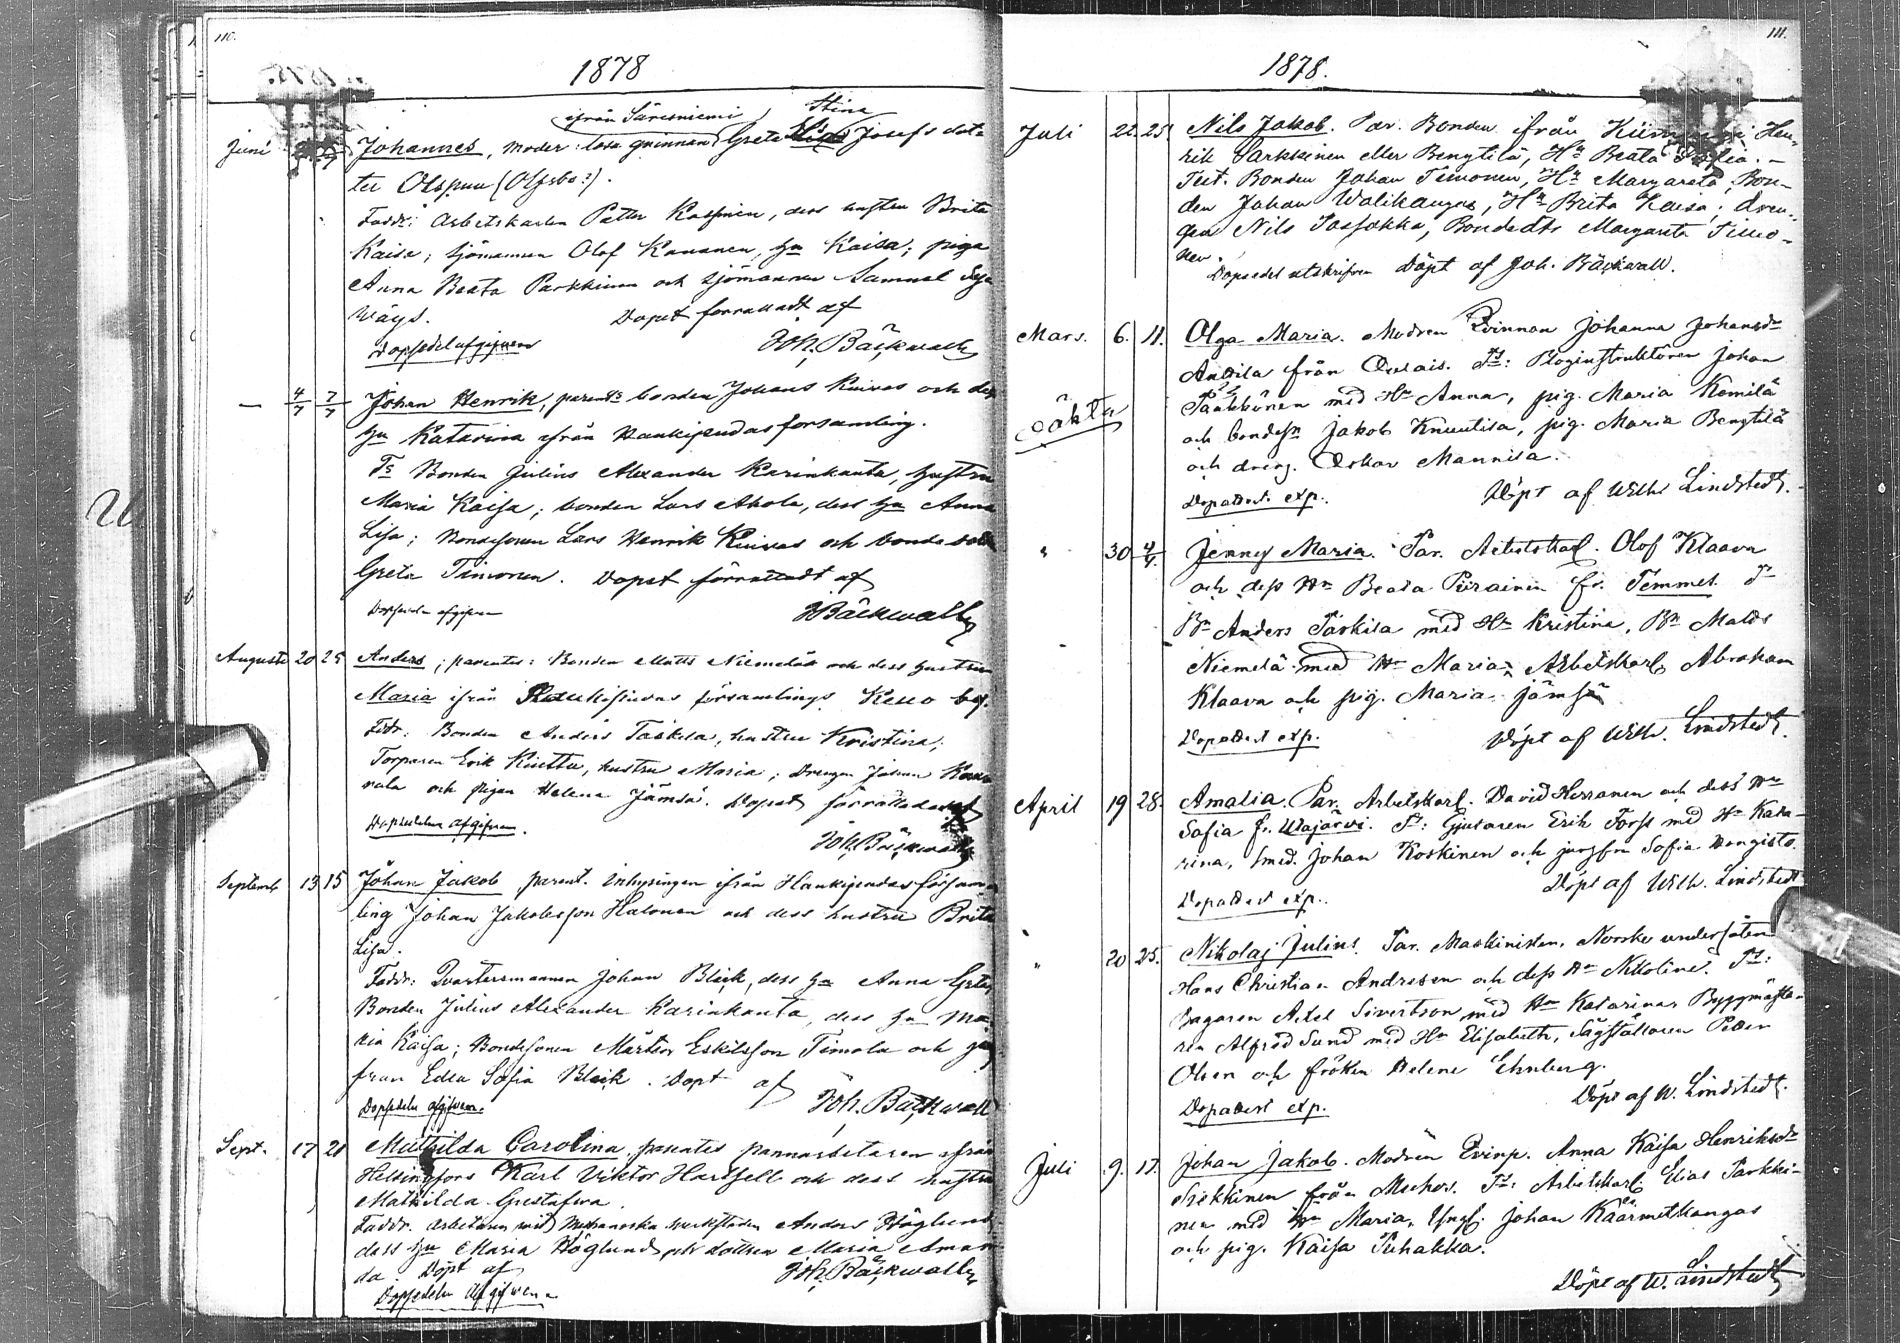 110.
1878
ifrån Säresniemi Stina
Juni Johannes, moder: lösa qvinnan Greta Josefs dot-
ter Olspuu (Olfsbo?).
Faddr: Arbetskarlen Petter Kaspinen, dess hustru Brita
Kaisa; sjömannen Olof Kananen, hu Kaisa; pigan
Anna Beata Parkkinen och sjömannen Samuel
Dopet förrättadt af
Dopsedel afgifven Joh. Bäckwall
— 4/7 7/7 Johan Henrik, parents bonden Johans Kuivas och dess
hu Katarina ifrån Haukipudas församling.
Ts Bonden Julius Alexander Karinkanta, hustru
Maria Kaisa; bonden Lars Akola, dess hu Anna
Lisa; Bondesonen Lars Henrik Kuivas och bonde
Greta Timonen. Dopet förrättadt af
Dopsedeln afgifven JBäckwall
Augusti 20 25 Anders; parentes: Bonden Matts Niemelä och dess hustru
Maria ifrån Haukipudas församlings Kello by.
Fddr: Bonden Anders Taskila, hustru Kristina;
Torparen Erik Kuttu, hustru Maria; Drengen Johan
och pigan Helena Jämsä. Dopet förrättadt af
Dopsedeln afgifven. Joh. Bäckwall
Septemb 13 15 Johan Jakob parent. Inhysingen ifrån Haukipudas församling
ling Johan Jakobsson Halonen och dess hustru Brita
Lisa.
Faddr: Qvartersmannen Johan Bleik, dess hu Anna Greta,
Bonden Julius Alexander Karinkanta, dess hu Ma-
ria Kaisa; Bondesonen Märten Eskilsson Timola och
frun Edla Sofia Bleik. Dopt af
Dopsedeln afgifven. Joh. Bäckwall
Sept. 17 21 Mathilda Carolina parentes pannarbetaren ifrån
Helsingfors Karl Viktor Hartfell och dess hustru
Mathilda Gustafva.
Faddr. Arbetaren wid Mekaniska werkstaden Anders Höglund
dess hu Maria Höglund och dottren Maria Aman-
da. Döpt af Joh. Bäckwall
Dopsedeln afgifven
111.
1878.
Juli 22. 25. Nils Jakob. Par. Bonden ifrån Hen-
rik Parkkinen eller Bengtilä, Hu Beata Sofia. —
Test. Bonden Johan Timonen, Hu Margareta, Bon-
den Johan Walikangas, Hu Brita Kaisa; dren-
gen Nils Bondedtr Margareta Timo-
nen.
Dopsedel utskrifven Döpt af Joh. Bäckwall.
Mars. 6. 11. Olga Maria. Modren Qvinnan Johanna Johansdr
Andila från Oulais. Ts: Ploginstruktören Johan
oäkta Pääkkönen med Hu Anna, pig. Maria Kemilä
och bondesn Jakob Knuutila, pig. Maria Bengtilä
och dreng. Oskar Mannila.
Dopattest exp. Döpt af Wilh. Lindstedt.
" 30 4/4. Jenny Maria. Par. Arbetskarl. Olof Klaavu
och dess Hu Beata Piirainen fr. Temmes. Ts
Bn Anders Taskila med Hu Kristina, Bn Matts
Niemelä med Hu Maria, Arbetskarl. Abraham
Klaavu och pig. Maria Jämsä
Dopattest exp. Döpt af Wilh. Lindstedt.
April 19 28. Amalia. Par. Arbetskarl. David Herranen och dess Hu
Sofia fr. Utajärvi. Ts: Gjutaren Erik Forss med Hu Kata-
rina, smed. Johan Koskinen och jungfru Sofia Hongisto.
Dopattest exp. Döpt af Wilh. Lindstedt
" 20 25. Nikolaj Julius. Par. Maskinisten, Norske undersåten
Hans Christian Andresen och dess Hu Nikoline. Ts:
Bagaren Axel Sivertson med Hu Katarina, Byggmästa-
ren Alfred Sund med Hu Elisabeth, Sågställaren Peder
Olsen och fröken Helene Ehnberg.
Dopattest exp. Döpt af W. Lindstedt.
Juli 9. 17. Johan Jakob. Modren Qvinn. Anna Kaisa Henriksdr
från Muhos. Ts: Arbetskarl. Elias Parkki-
nen med Hu Maria, Yngl. Johan Käärmetkangas
och pig. Kaisa Puhakka.
Döpt af W. Lindstedt